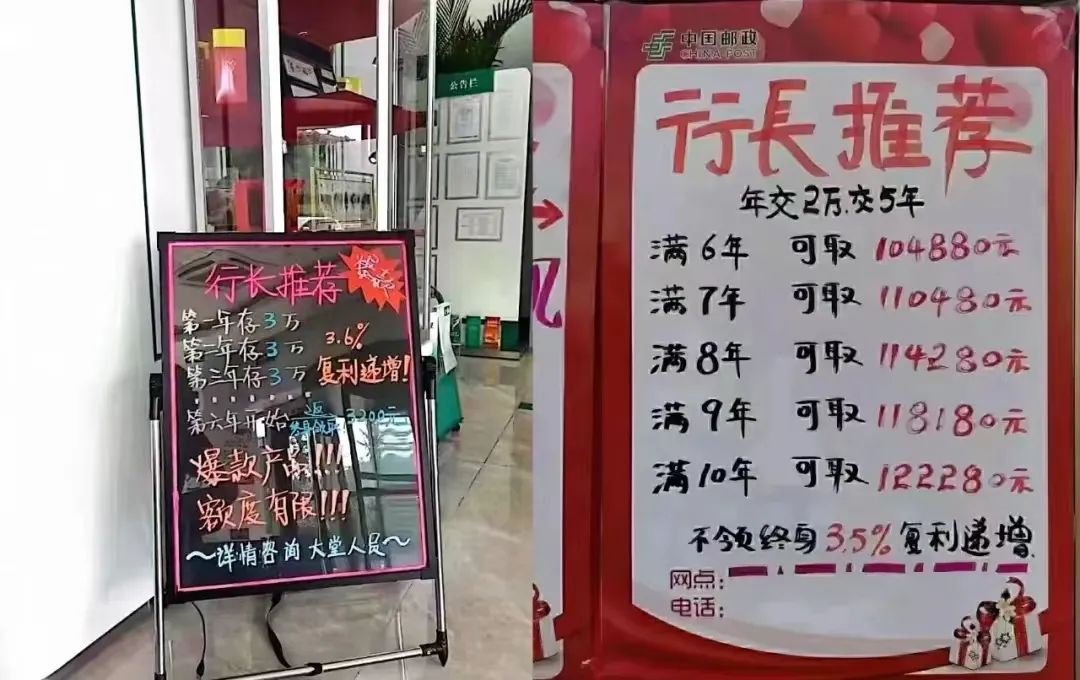 公告栏
行长推荐
第一年存3万
第一年存3万
第三年存3万
3.6%
复利递增!
第六年开始
返
终身领取
3200元
爆款产品!!!
额度有限!!!
～详情咨询 大堂人员～
中国邮政
CHINA POST
行長推荐
年交2万.交5年
满6年 可取 104880元
满7年 可取 110480元
满8年 可取 114280元
满9年 可取 118180元
满10年 可取 122280元
不领终身3.5%复利递增
网点:
电话: